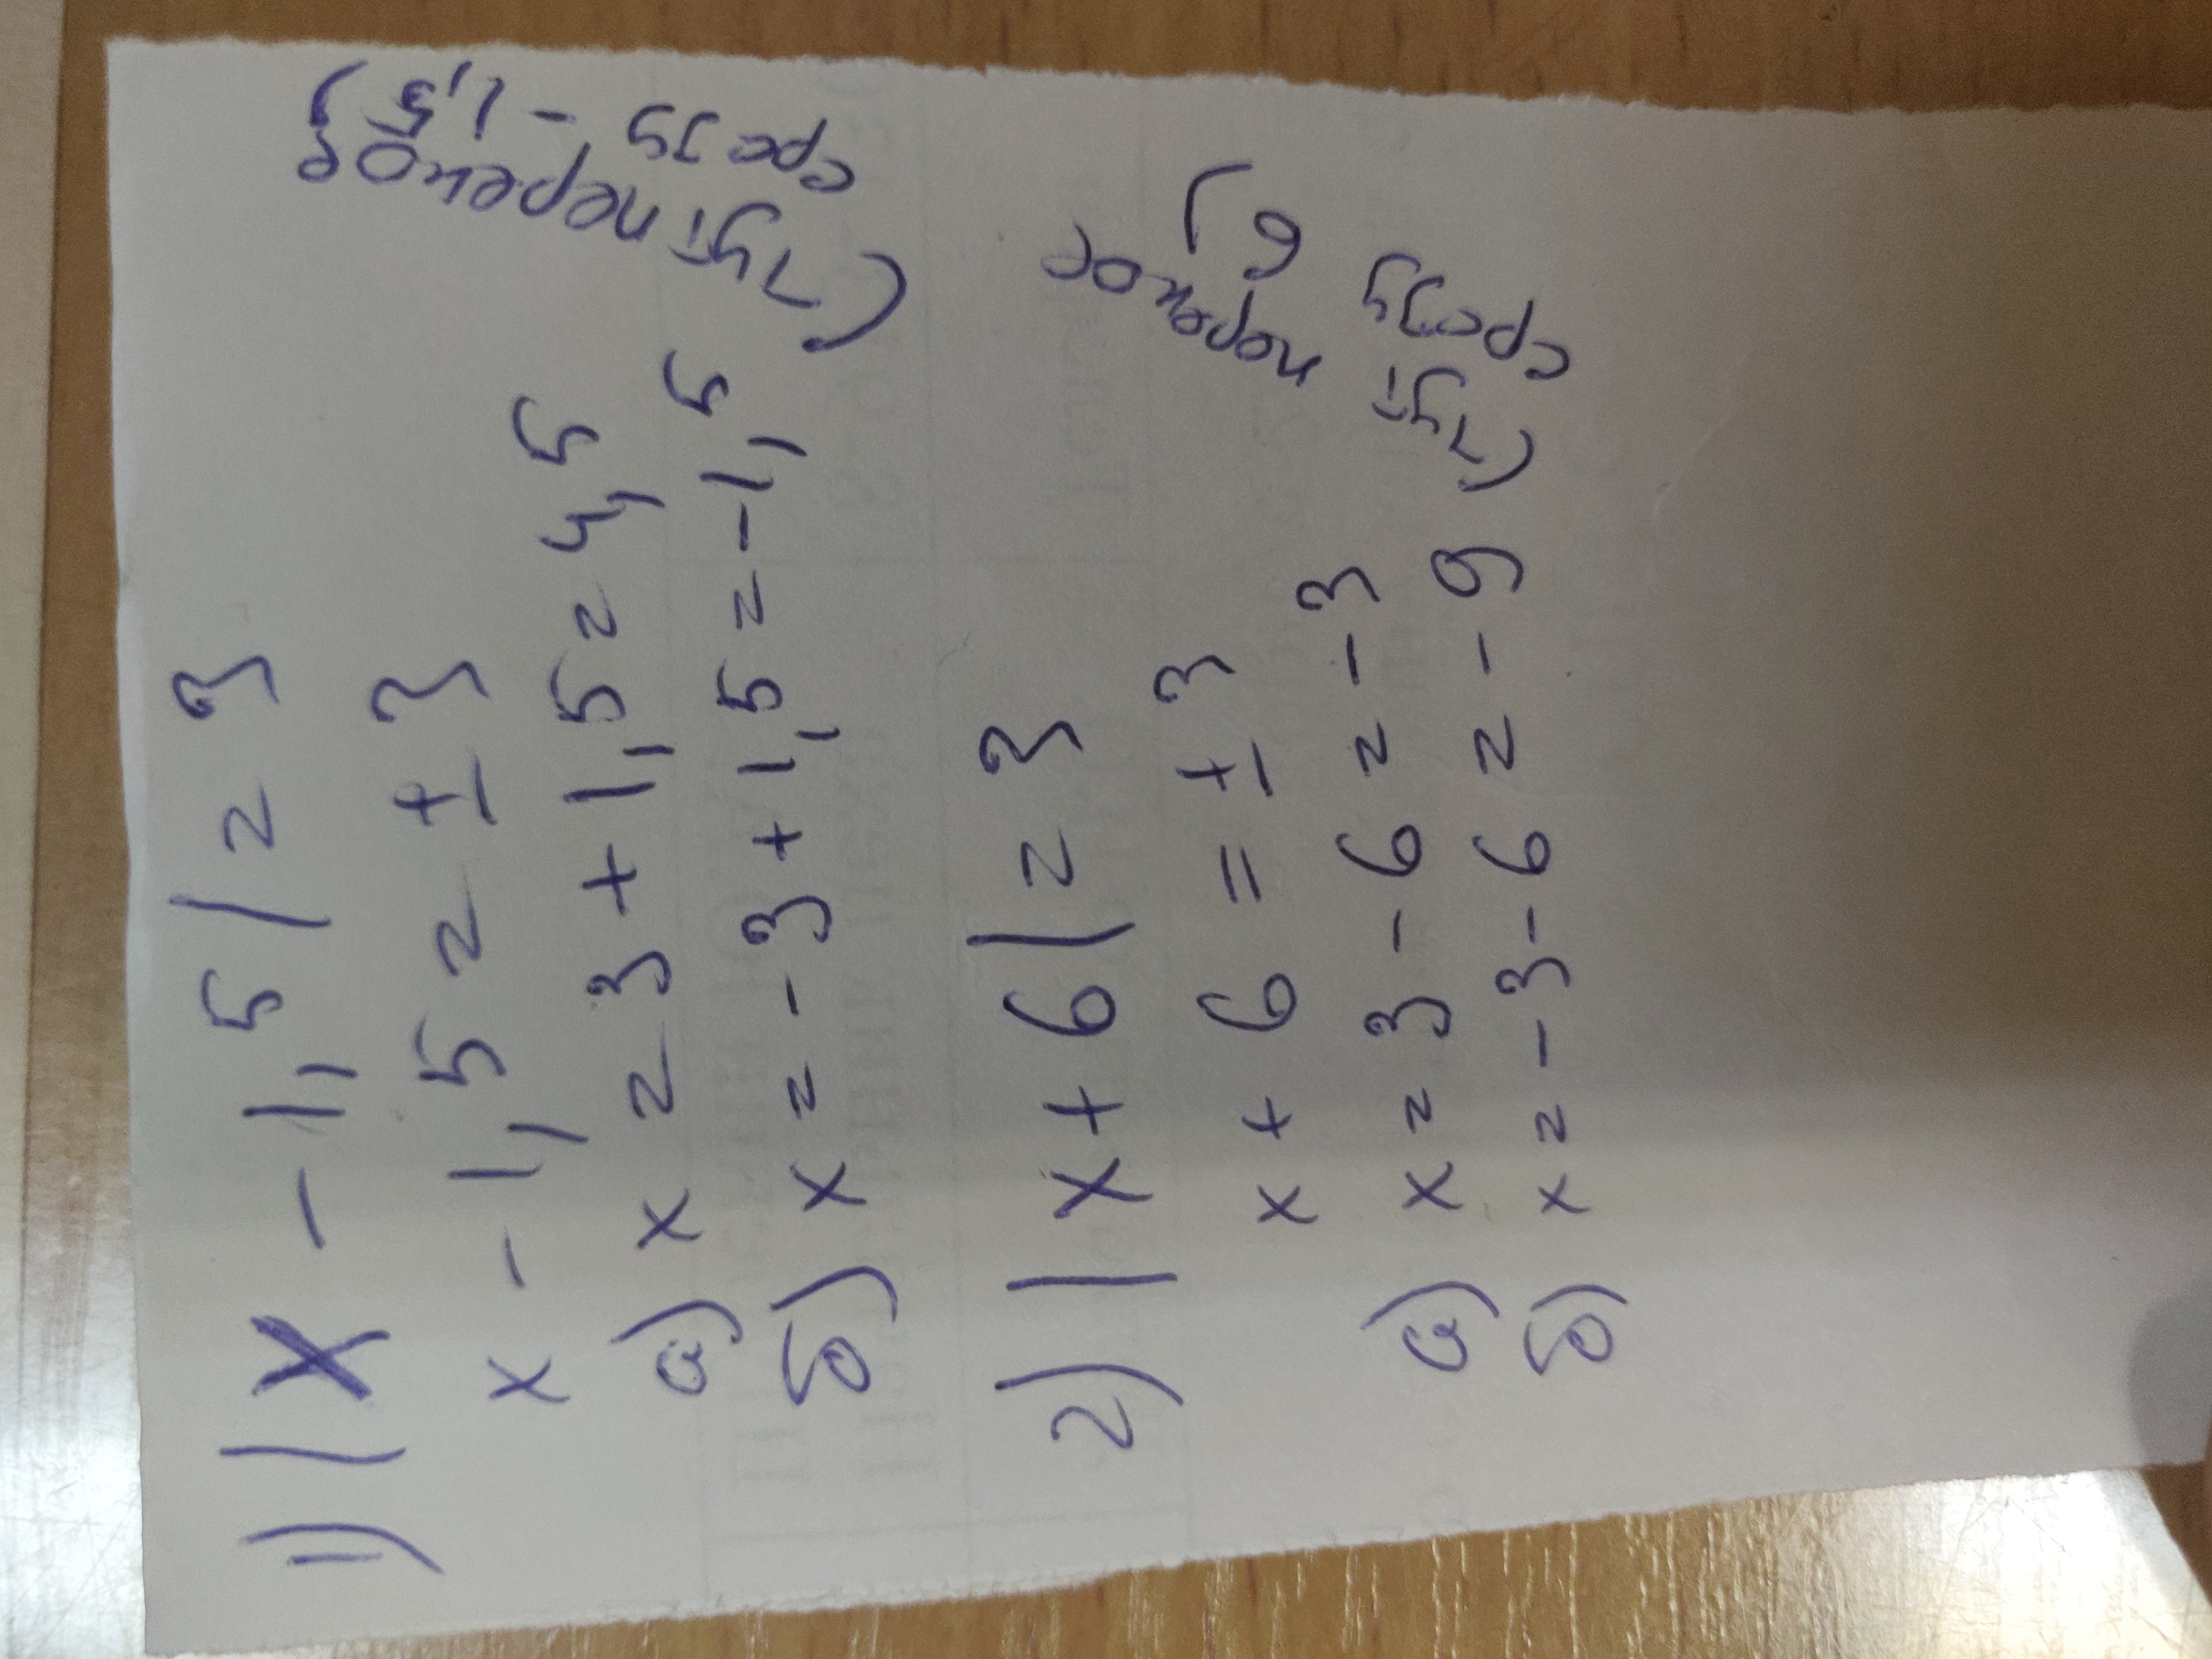 1) |x - 1,5| = 3
x - 1,5 = ± 3
а) x = 3 + 1,5 = 4,5
б) x = - 3 + 1,5 = - 1,5
(тут перенос
сразу - 1,5)
2) |x + 6| = 3
x + 6 = ± 3
а) x = 3 - 6 = - 3
б) x = - 3 - 6 = - 9
(тут перенос
сразу 6)